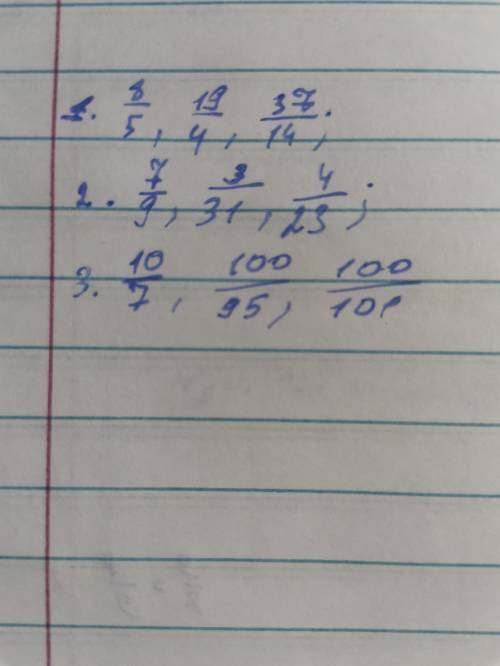 1. 8/5, 19/4, 37/14;
2. 7/9, 3/31, 4/23;
3. 10/7, 100/95, 100/101